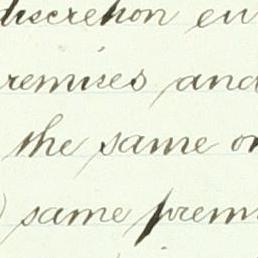 discretion en
remises and
the same or
) same prem